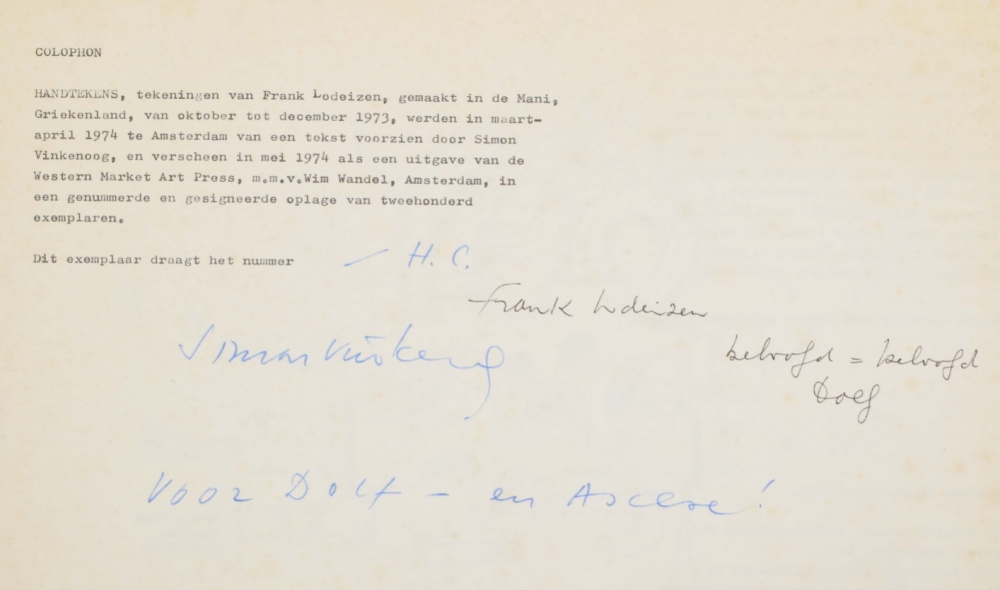 COLOPHON
HANDTEKENS, tekeningen van Frank Lodeizen, gemaakt in de Mani,
Griekenland, van oktober tot december 1973, werden in maart-
april 1974 te Amsterdam van een tekst voorzien door Simon
Vinkenoog, en verscheen in mei 1974 als een uitgave van de
Western Market Art Press, m.m.v.Wim Wandel, Amsterdam, in
een genummerde en gesigneerde oplage van tweehonderd
exemplaren.
Dit exemplaar draagt het nummer — H. C.
Frank Lodeizen
Simon Vinkenoog
beloofd = beloofd
Dolf
Voor Dolf - en